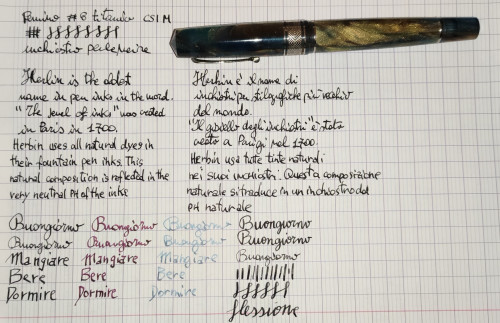 Pennino #8 titanio CSI M
inchiostro perle noire
Herbin is the oldest
name in pen inks in the word.
"The Jewel of inks" was created
in Paris in 1700.
Herbin uses all natural dyes in
their fountain pen inks. This
natural composition is reflected in the
very neutral PH of the inks
Herbin è il name di
inchiostri per stilografiche più vecchio
del mondo.
"Il gioiello degli inchiostri" è stato
creato a Parigi nel 1700.
Herbin usa tute tinte naturali
nei suoi inchiostri. Questa composizione
naturale si traduce in un inchiostro dal
PH naturale
Buongiorno Buongiorno Buongiorno Buongiorno
Buongiorno Buongiorno Buongiorno Buongiorno
Mangiare Mangiare Mangiare Buongiorno
Bere Bere Bere
Dormire Dormire Dormire
flessione